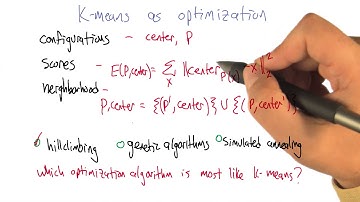 K-means as optimization
configurations - center, P
scores - E(P,center) = Σx ||center P(x) - x||₂²
neighborhood -
P, center = {(P', center)} ∪ {(P, center')}
hillclimbing genetic algorithms simulated annealing
which optimization algorithm is most like K-means?